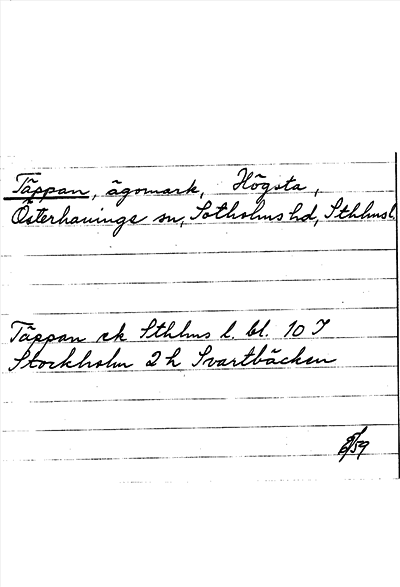 Täppan, ägomark, Högsta,
Österhaninge sn, Sotholms hd, Sthlmsl.
Täppan ek Sthlms l. bl. 10 I
Stockholm 2 h Svartbäcken
/59